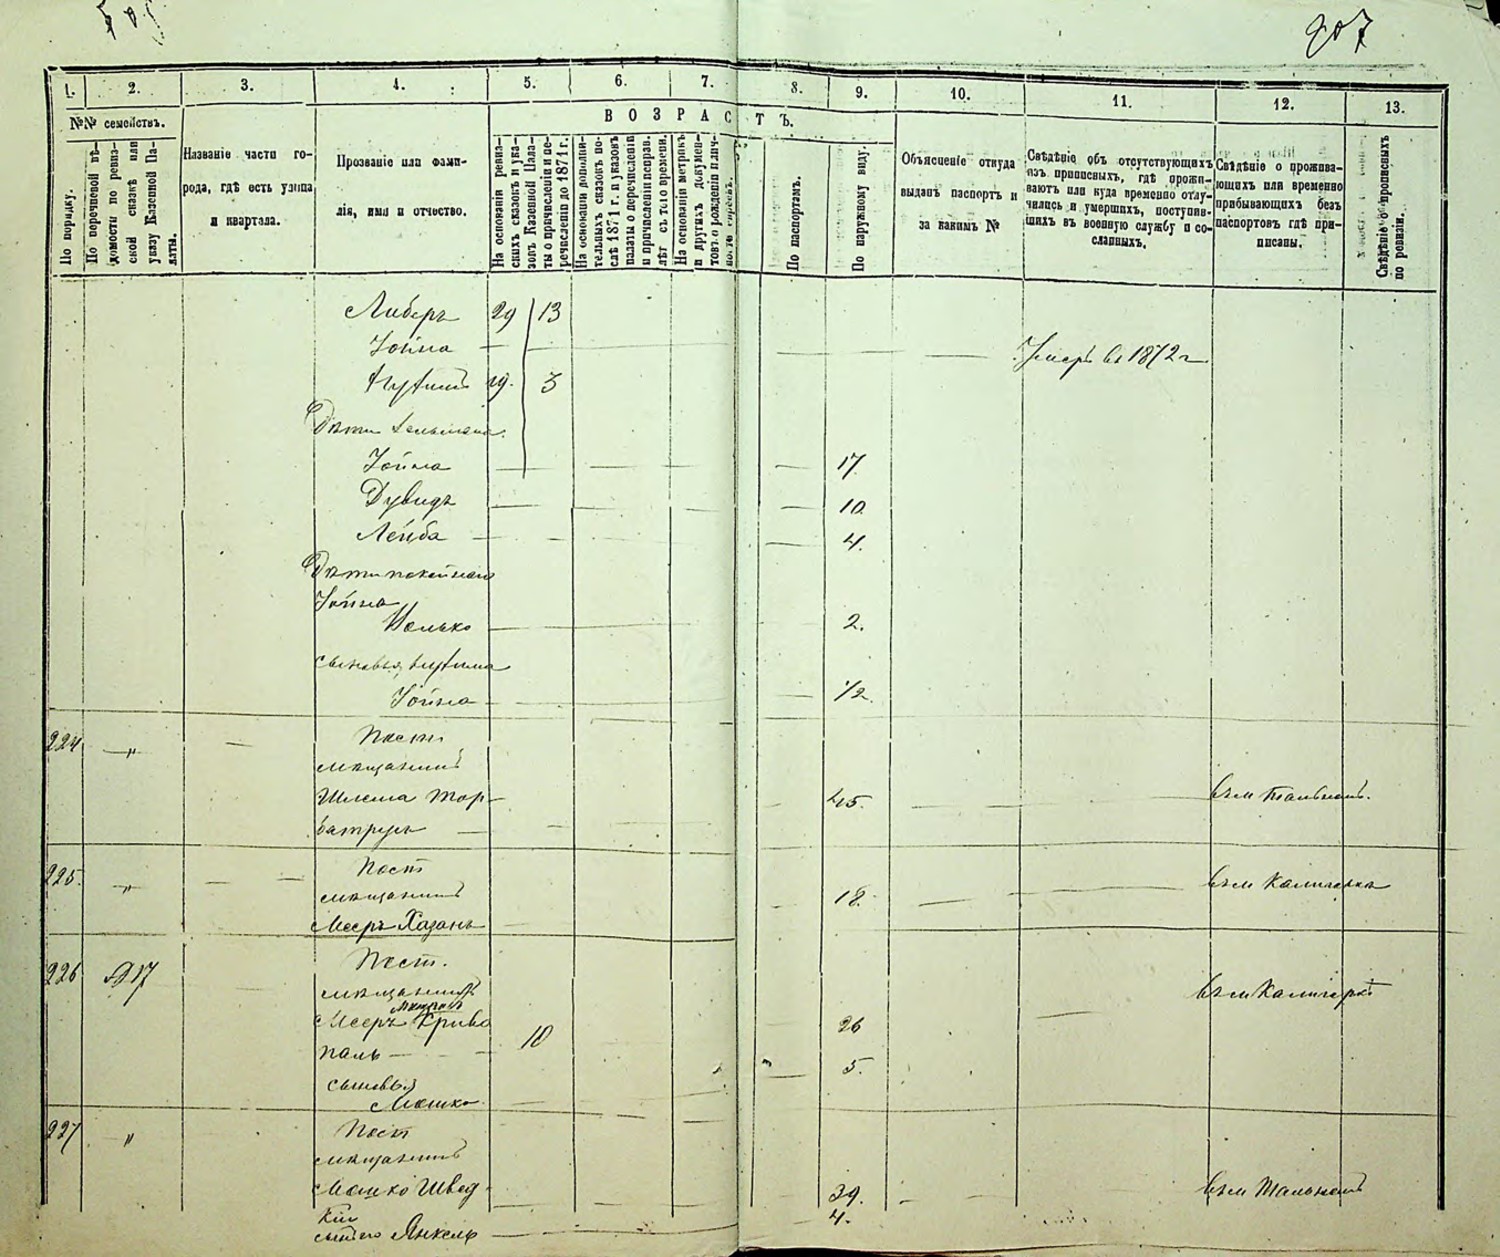 207
1. 2. 3. 4. 5. 6. 7. 8. 9. 10. 11. 12. 13.
№№ семействъ.
По порядку.
По перечневой вѣ-
домости по ревиз-
ской сказкѣ или
указу Казенной Па-
латы.
Названіе части го-
рода, гдѣ есть улица
и квартала.
Прозваніе или фами-
лія, имя и отчество.
ВОЗРАСТЪ.
На основаніи ревиз-
скихъ сказокъ и ука-
зовъ Казенной Пала-
ты о причисленіи и пе-
речисленіи до 1871 г.
На основаніи дополни-
тельныхъ сказокъ по-
слѣ 1871 г. и указовъ
палаты о перечисленіи
и причисленіи неправ.
лѣт съ того времени.
На основаніи метрикъ
и другихъ докумен-
товъ о рожденіи
По паспортамъ.
По наружному виду.
Объясненіе откуда
выданъ паспортъ и
за какимъ №
Свѣдѣніе объ отсутствующихъ
изъ приписныхъ, гдѣ прожи-
ваютъ или куда временно отлу-
чились и умершихъ, поступив-
шихъ въ военную службу и со-
сланныхъ.
Свѣдѣніе о прожива-
ющихъ или временно
прибывающихъ безъ
паспортовъ гдѣ при-
писаны.
Свѣдѣніе о прописныхъ
по ревизіи.
Либеръ 29 13
Іойна — — — — Умеръ въ 1872 г
19. 3
Дѣти
Іойна — — — — 17.
Дувидъ — — — — 10.
Лейба — — — 4.
Дѣти покойнаго
Іойна
— — 2.
сыновья
Іойна — — 1/2
224 — " — Пост.
мѣщанинъ
Шлема Тор- 45. — въ м Тальномъ.
батрукъ —
225. — " — — — Пост
мѣщанинъ 18. — въ м
Мееръ Хазанъ —
226 №17 Пост.
мѣщанинъ въ м
Мееръ Криво 26
паль — 10
сыновья 5.
Мошко —
227 " Пост
мѣщанинъ
Мошко Швед- 39. — въ м Тальномъ
кій
сынъ его Янкель — 4.